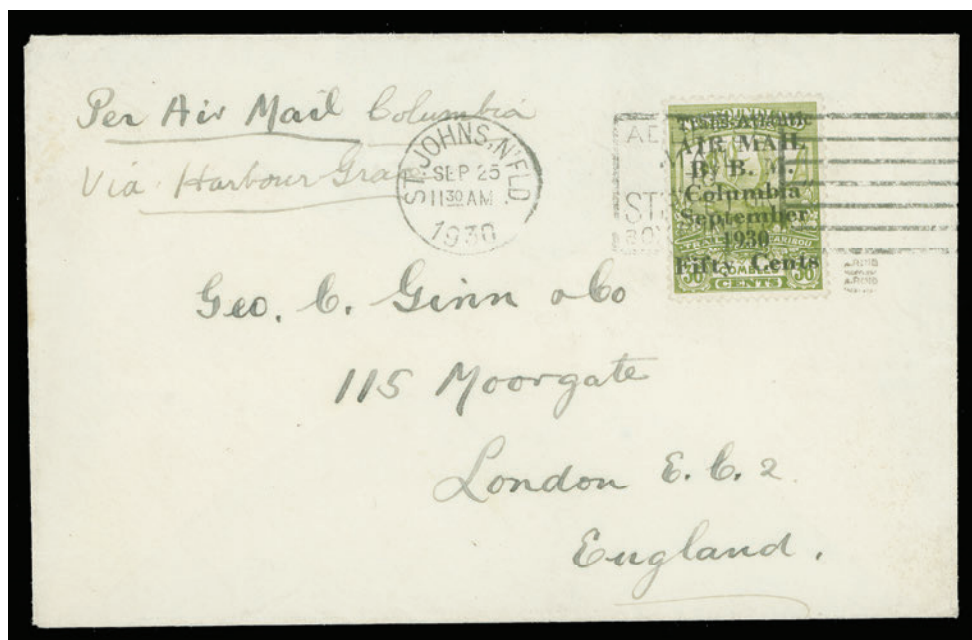 Per Air Mail Columbia
Via Harbour Grace
ST. JOHN'S, N'FLD.
SEP 25
11 30 AM
1930
Trans-Atlantic
AIR MAIL
By B. M.
"Columbia"
September
1930
Fifty Cents
36 36
CENTS
Geo. C. Ginn & Co
115 Moorgate
London E.C.2.
England.